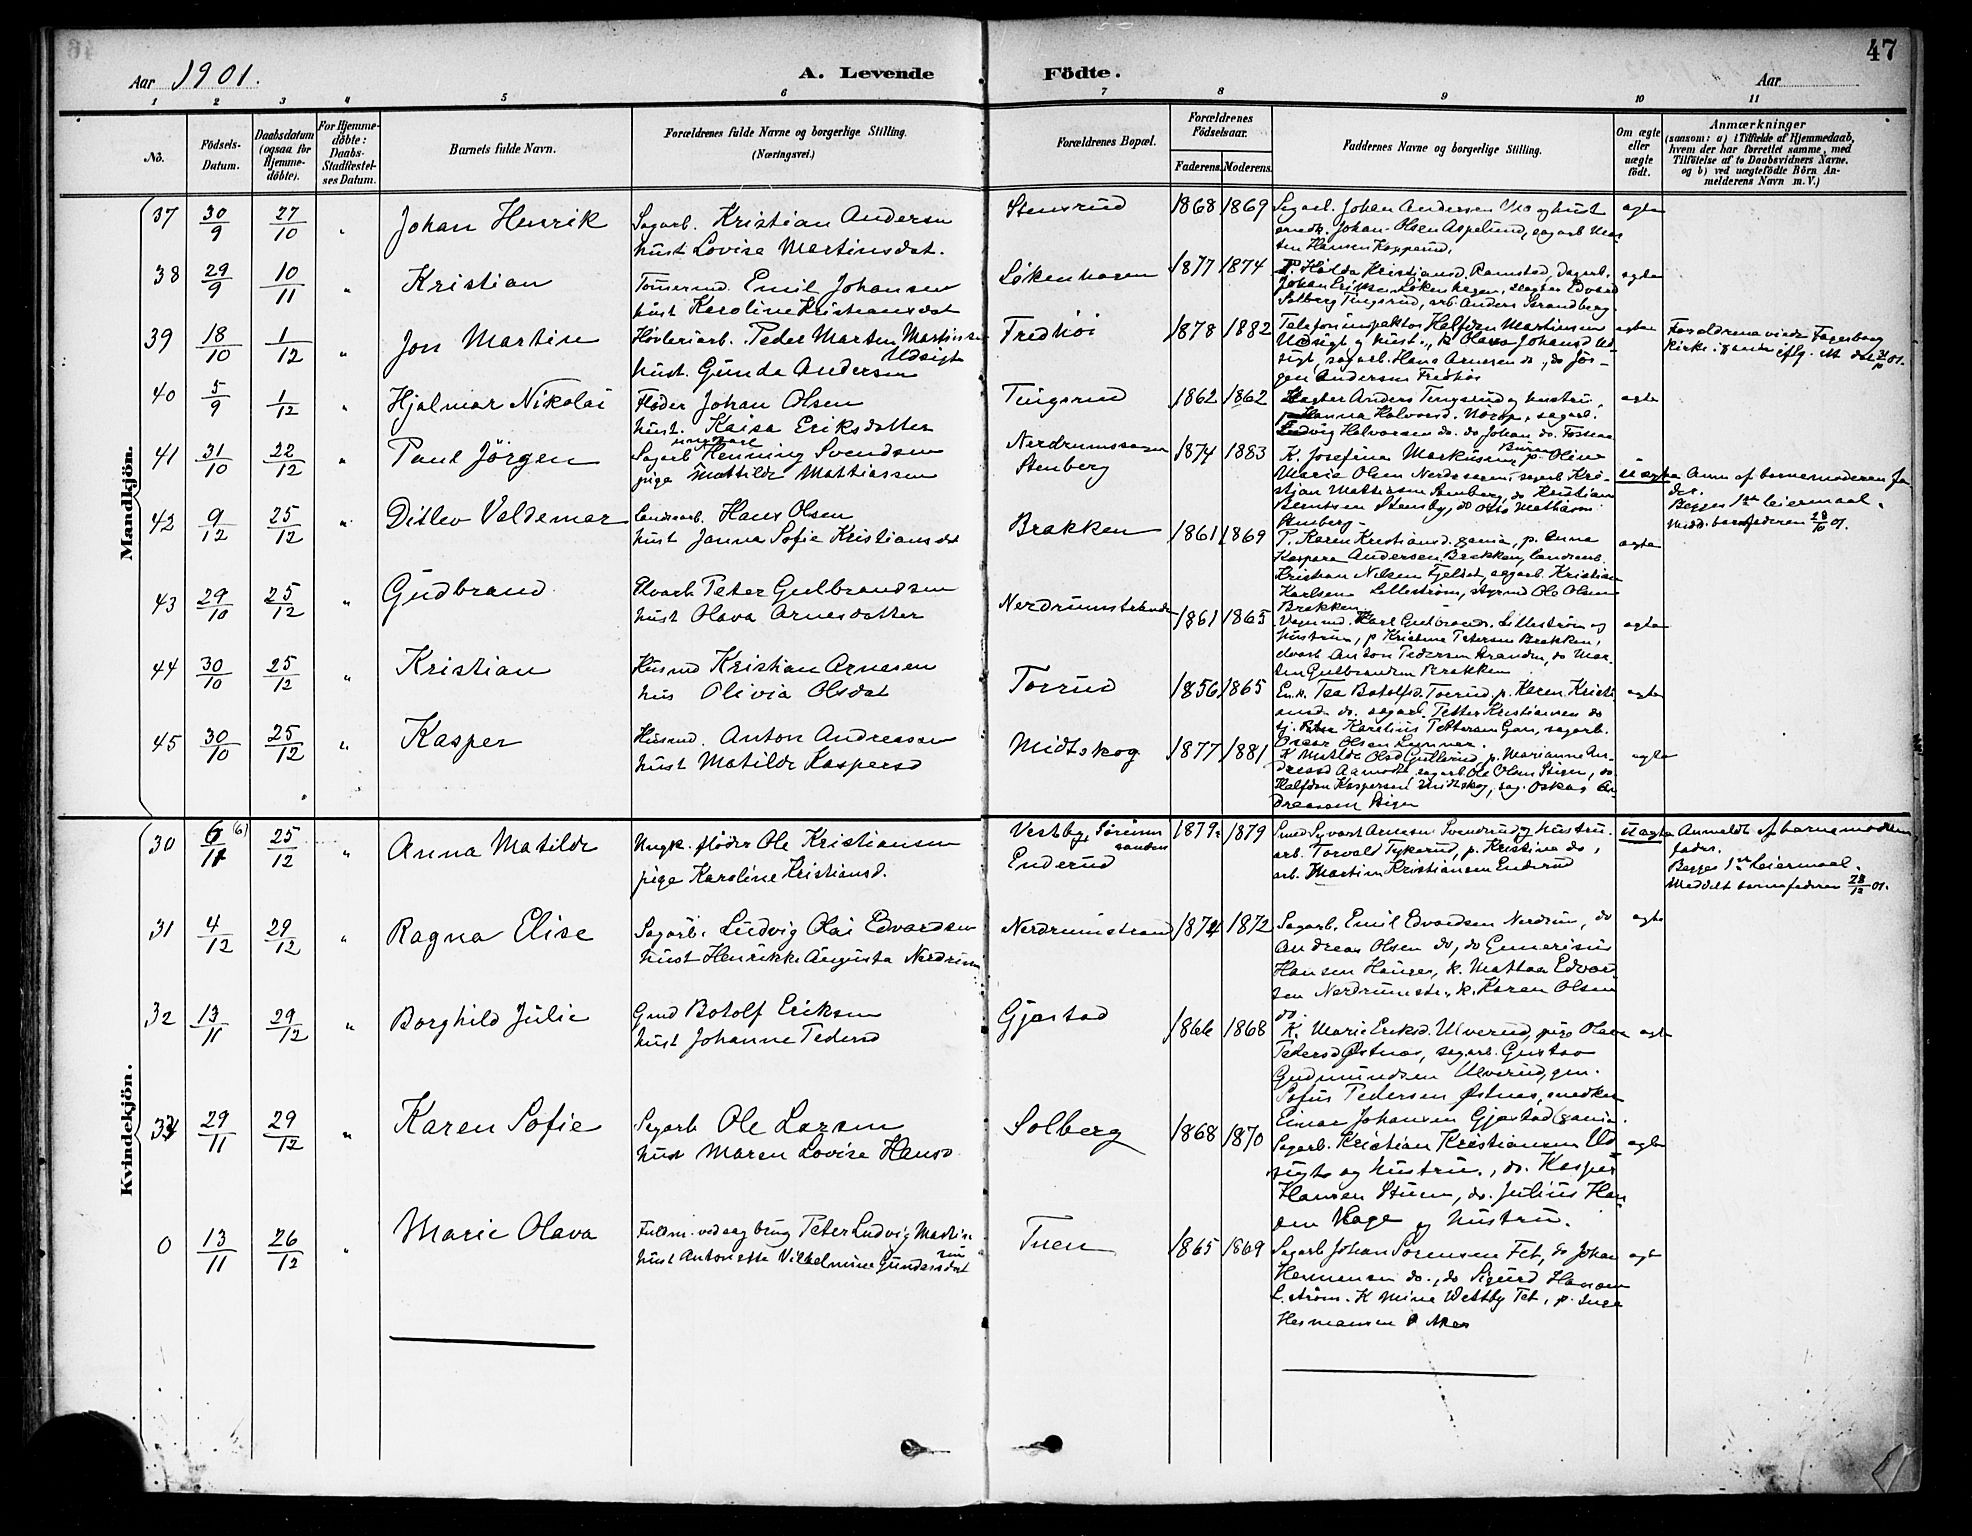 47
Aar 1901.
A. Levende Födte.
Aar
1 2 3 4 5 6 7 8 9 10 11
No.
Födsels-Datum.
Daabsdatum (ogsaa for Hjemme-döbte).
For Hjemme-döbte: Daabs-Stadfæstel-ses Datum.
Barnets fulde Navn.
Forældrenes fulde Navne og borgerlige Stilling. (Næringsvei.)
Forældrenes Bopæl.
Forældrenes Födselsaar.
Faderens. Moderens.
Faddernes Navne og borgerlige Stilling.
Om ægte eller uægte födt.
Anmærkninger
(saasom: a) i Tilfælde af Hjemmedaab, hvem der har forrettet samme, med Tilföielse af to Daabsvidners Navne. og b) ved uægtefödte Börn An-melderens Navn m. V.)
Mandkjön.
37 30/9 27/10 " Johan Henrik
Sagarb. Kristian Andersen
hust Lovise Martinsdat.
Stensrud 1868 1869
Sagarb. Johan Andersen Mo og hust
snedk. Johan Olsen Aspelund, sagarb
Hansen Kopperud.
ægte
38 29/9 10/11 " Kristian
Tömmermd. Emil Johansen
hust Karoline Kristiansdat
Løkenhagen 1877 1874
P. Hilda Kristiansd. Ramstad, Dagarb.
Johan Eriksen Løkenhagen, slagter Edvard
Solberg Tingsrud, arb. Anders Strandberg.
ægte
39 18/10 1/12 " Jon Martin
Hövleriarb. Peder Marten Martinsen
Udsigt
hust. Gunda Andersen
Fredhöi 1878 1882
Telefoninspektör Halfdan Martinsen
Udsigt og hust., k Olava Johansd Ud
sigt, sagarb. Hans Arnesen do., do Jör-
gen Andersen Fredhöi
ægte
Forældrene viede Fagerborg
kirke
40 5/9 1/12 " Hjalmar Nikolai
Flöder Johan Olsen
hust. Kaisa Eriksdatter
Tingsrud 1862 1862
Slagter Anders Tingsrud og hustru,
Hanna Halvorsd. sagarb.
Ludvig Halvorsen do. do Johan do. Fossen
ægte
41 31/10 22/12 " Paul Jörgen
ungkare
Sagarb Henning Svendsen
pige Mattilde Mattiassen
Nerdrumssagen
Stenberg
1874 1883
K. Josefine Markussen, p. Oline
Marie Olsen Nerdrsagen, sagarb Kri-
stian Mattiasen Stenberg, do Kristian
Berntsen Stenby, do Otto Mathisen
Stenberg
Uægte
Anm af barnemoderen fa
der.
Begges 1ste leiermaal.
Medd. barnefaderen 28/10 01.
42 9/12 25/12 " Ditlev Valdemar
Landarb. Hans Olsen
hust Janna Sofie Kristiansdat
Brakken 1861 1869
P. Karen Kristiansd. Gania, p. Anna
Kaspara Andersen Brakken, landarb.
Kristian Nilsen Fjelstad, sagarb. Kristian
Karlsen Lillestrøm, styrmd Ole Olsen
Brakken
ægte
43 29/10 25/12 " Gudbrand
Elvarb Peter Gulbrandsen
hust Olava Arnesdatter
Nerdrumstranden
1861 1865
Vognmd. Karl Gulbrands. Lilleström og
hustru, p Kristine Petersen Brakken,
elvarb Anton Pedersen Stranden, do Mar-
tin Gulbrandsen Brakken
ægte
44 30/10 25/12 " Kristian
Husmd Kristian Arnesen
hus Olivia Olsdat
Torrud 1856 1865
Enk. Tea Botolfsd. Torrud, p. Karen Kristi
ansd. do. sagarb. Petter Kristiansen do
tj. Karelius Pettersen Gan, sagarb.
Oscar Olsen
ægte
45 30/10 25/12 " Kasper
Husmd. Anton Andreassen
hust Matilde Kaspersd
Midtskog 1877 1881
K Matilde Olsd Gullerud, p. Marianne An-
dreasd Aamodt, sagarb Ole Olsen Stigen, do
Halfdan Kaspersen Midtskog, sag. Oskar An-
dreassen Stigen
ægte
Kvindekjön.
30 6/11 (6) 25/12 " Anna Matilde
Ungk. flöder Ole Kristiansen
pige Karoline Kristiansd.
Vestby, Sörum
sanden
Enderud
1879 1879
Smed Syvart Arnesen Svendrud og hustru.
arb. Torvald Tykerud, p. Kristine do,
arb. Martin Kristiansen Enderud
Uægte
Anmeldt af barnemoderen
fader.
Begges 1ste Leiermaal.
Meddelt barnefaderen 28/12 01.
31 4/12 29/12 " Ragna Elise
Sagarb. Ludvig Olai Edvardsen
hust Henrikke Augusta Nerdrum
Nerdrumstrand 1874 1872
Sagarb. Emil Edvardsen Nerdrum, do
Andreas Olsen do, do Gunerius
Hansen Hauger, k. Mattea Edvard
sen Nerdrumstr., k. Karen Olsen
do.
ægte
32 13/11 29/12 " Borghild Julie
Gmd Botolf Eriksen
hust Johanne Pedersd
Gjøstad 1866 1868
K. Marie Eriksd. Ulverud, pige Olava
Pedersd Østnæs, sagarb. Gustav
Gudmundsen Ulverud, gm.
Sofus Pedersen Østnæs, snedker
Einar Johansen Gjøstad Gania.
ægte
33 29/11 29/12 " Karen Sofie
Sagarb Ole Larsen
hust Maren Lovise Hansd
Solberg 1868 1870
Sagarb. Kristian Kristiansen Ud
sigt og hustru., do. Kasper
Hansen Stuen, do. Julius Han
sen Hage og hustru.
ægte
0 13/11 26/12 " Marie Olava
Fuldm. ved sagbrug Peter Ludvig Martin
sen
hust Antonette Vilhelmine Gundersdat
Tuen 1865 1869
Sagarb Johan Sørensen Fet, do Johan
Hermansen do., do Sigurd Hansen
L.ström. K Mina Vestby Fet, p. Inga
Hermansen Aker
ægte